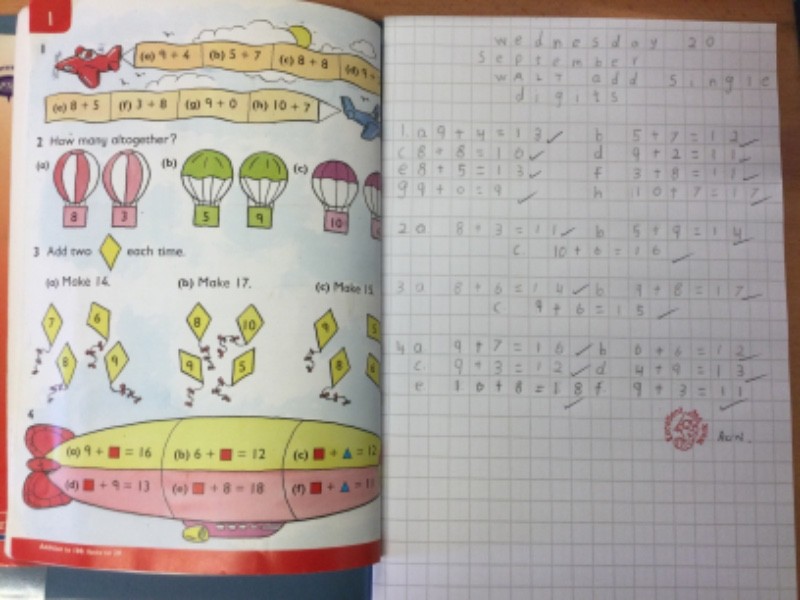 1
1
(a) 9 + 4 (b) 5 + 7 (c) 8 + 8 (d) 9 +
(e) 8 + 5 (f) 3 + 8 (g) 9 + 0 (h) 10 + 7
2 How many altogether?
(a) (b) (c)
8 3 5 9 10
3 Add two each time.
(a) Make 14. (b) Make 17. (c) Make 15
7 6 8 10 9 5
8 9 9 5 8 6
4
(a) 9 + ■ = 16 (b) 6 + ■ = 12 (c) ■ + ▲ = 12
(d) ■ + 9 = 13 (e) ■ + 8 = 18 (f) ■ + ▲ = 11
wednesday 20
September
WALT add single
digits
1. a 9 + 4 = 13 b 5 + 7 = 12
c 8 + 8 = 16 d 9 + 2 = 11
e 8 + 5 = 13 f 3 + 8 = 11
g 9 + 0 = 9 h 10 + 7 = 17
2 a 8 + 3 = 11 b 5 + 9 = 14
c 10 + 6 = 16
3 a 8 + 6 = 14 b 9 + 8 = 17
c 9 + 6 = 15
4 a 9 + 7 = 16 b 6 + 6 = 12
c. 9 + 3 = 12 d 4 + 9 = 13
e 10 + 8 = 18 f. 9 + 3 = 11